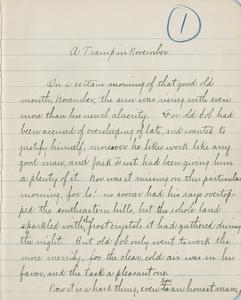 1
A Tramp in November.
On a certain morning of that good old
month, November, the sun was rising with even
more than his usual alacrity. For old Sol had
been accused of oversleeping of late, and wanted to
justify himself; moreover he likes work like any
good man, and Jack Frost had been giving him
a plenty of it. Nor was it missing on this particular
morning, for lo! no sooner had his rays overtop-
ped the southeastern hills, but the whole land
sparkled with frost crystals it had gathered during
the night. But old Sol only went to work the
more merrily, for the clear, cold air was in his
favor, and the task a pleasant one.
Now it is a hard thing, even to an honest man,